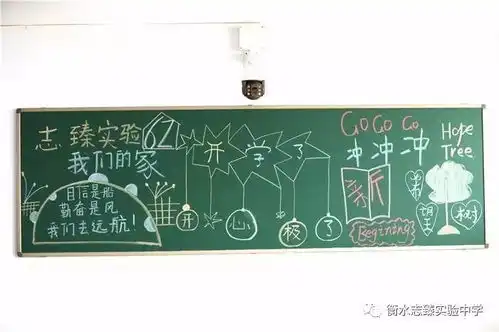 志臻实验 62
我们的家
自信是船
勤奋是风
我们去远航！
开学了
开心极了
GO GO Go
冲冲冲
新
Beginning
Hope
Tree
希
望
树
衡水志臻实验中学